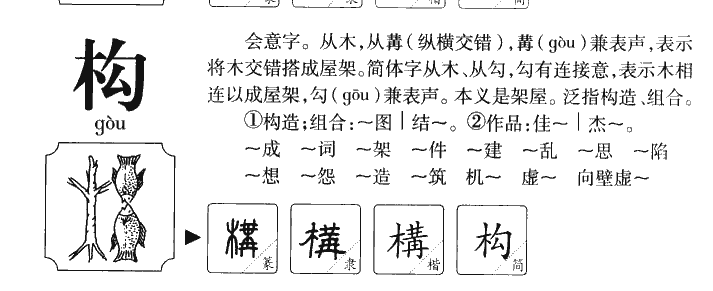 隶 楷 简
构
gòu
会意字。从木,从冓(纵横交错),冓(gòu)兼表声,表示
将木交错搭成屋架。简体字从木、从勾,勾有连接意,表示木相
连以成屋架,勾(gōu)兼表声。本义是架屋。泛指构造、组合。
①构造;组合:~图|结~。②作品:佳~|杰~。
~成 ~词 ~架 ~件 ~建 ~乱 ~思 ~陷
~想 ~怨 ~造 ~筑 机~ 虚~ 向壁虚~
構 構 構 构
篆 隶 楷 简